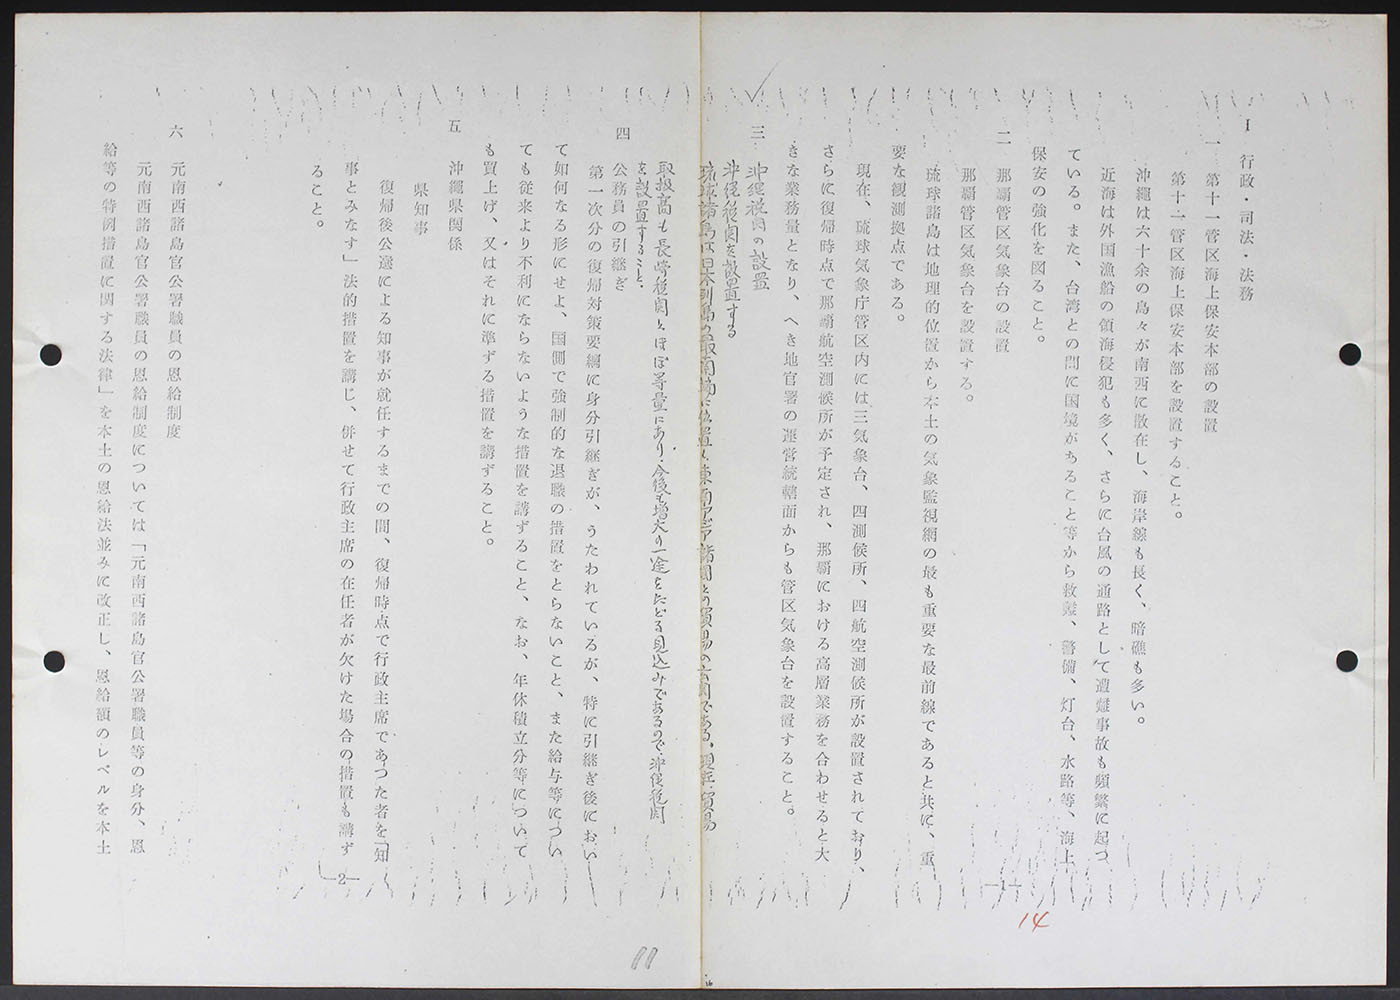 I 行政・司法・法務
一 第十一管区海上保安本部の設置
第十一管区海上保安本部を設置すること。
沖縄は六十余の島々が南西に散在し、海岸線も長く、暗礁も多い。
近海は外国漁船の領海侵犯も多く、さらに台風の通路として遭難事故も頻繁に起つ
ている。また、台湾との間に国境があること等から救難、警備、灯台、水路等、海上
保安の強化を図ること。
二 那覇管区気象台の設置
那覇管区気象台を設置する。
琉球諸島は地理的位置から本土の気象監視網の最も重要な最前線であると共に、重
要な観測拠点である。
現在、琉球気象庁管区内には三気象台、四測候所、四航空測候所が設置されており、
さらに復帰時点で那覇航空測候所が予定され、那覇における高層業務を合わせると大
きな業務量となり、へき地官署の運営統轄面からも管区気象台を設置すること。
三 沖縄税関の設置
沖縄税関を設置する
琉球諸島は日本列島の最南端に位置し東南アジア諸国との貿易の玄関である。現在、貿易
取扱高も長崎税関とほぼ等量にあり、今後も増大の一途をたどる見込みであるので、沖縄税関
を設置すること、
四 公務員の引継ぎ
第一次分の復帰対策要綱に身分引継ぎが、うたわれているが、特に引継ぎ後におい
て如何なる形にせよ、国側で強制的な退職の措置をとらないこと、また給与等につい
ても従来より不利にならないような措置を講ずること、なお、年休積立分等について
も買上げ、又はそれに準ずる措置を講ずること。
五 沖縄県関係
県知事
復帰後公選による知事が就任するまでの間、復帰時点で行政主席であつた者を「知
事とみなす」法的措置を講じ、併せて行政主席の在任者が欠けた場合の措置も講ず
ること。
六 元南西諸島官公署職員の恩給制度
元南西諸島官公署職員の恩給制度については「元南西諸島官公署職員等の身分、恩
給等の特例措置に関する法律」を本土の恩給法並みに改正し、恩給額のレベルを本土
—1—
—2—
14
11